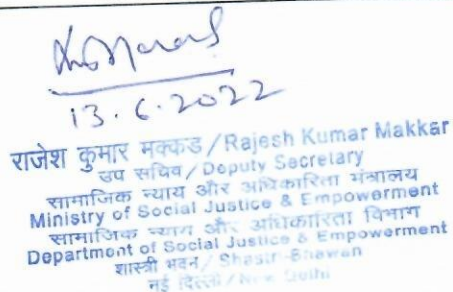 13.6.2022
राजेश कुमार मक्कड़/Rajesh Kumar Makkar
उप सचिव/Deputy Secretary
सामाजिक न्याय और अधिकारिता मंत्रालय
Ministry of Social Justice & Empowerment
सामाजिक न्याय और अधिकारिता विभाग
Department of Social Justice & Empowerment
शास्त्री भवन/Shastri Bhawan
नई दिल्ली/New Delhi